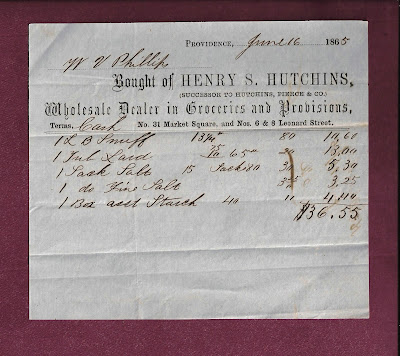 PROVIDENCE, June 16 1865
W V Phillip
Bought of HENRY S. HUTCHINS,
(SUCCESSOR TO HUTCHINS, PIERCE & CO.)
Wholesale Dealer in Groceries and Provisions,
Terms, Cash No. 31 Market Square, and Nos. 6 & 8 Leonard Street.
1 L B Snuff 13¼ 80 10,60
1 Tub Lard 65 20 13,00
1 Sack Salt 15 Sack 80 5,30
1 do Fine Salt 3,25
1 Box Starch 40 4,40
$36.55